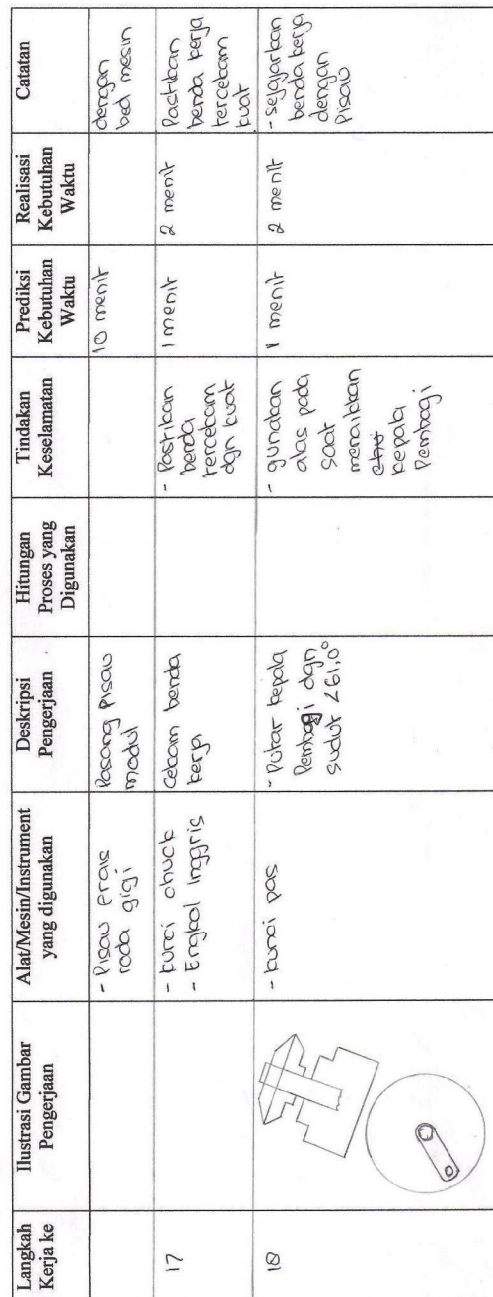 Langkah
Kerja ke
Ilustrasi Gambar
Pengerjaan
Alat/Mesin/Instrument
yang digunakan
Deskripsi
Pengerjaan
Hitungan
Proses yang
Digunakan
Tindakan
Keselamatan
Prediksi
Kebutuhan
Waktu
Realisasi
Kebutuhan
Waktu
Catatan
- Pisau Frais
roda gigi
Pasang Pisau
modul
10 menit
dengan
bed mesin
17
- kunci chuck
- Engkol Inggris
Cekam benda
kerja
- Pastikan
benda
tercekam
dgn kuat
1 menit
2 menit
Pastikan
benda kerja
tercekam
kuat
18
- kunci pas
- Putar kepala
Pembagi dgn
sudut <61,0°
- gunakan
alas pada
saat
menaikkan
kepala
Pembagi
1 menit
2 menit
- sejajarkan
benda kerja
dengan
Pisau